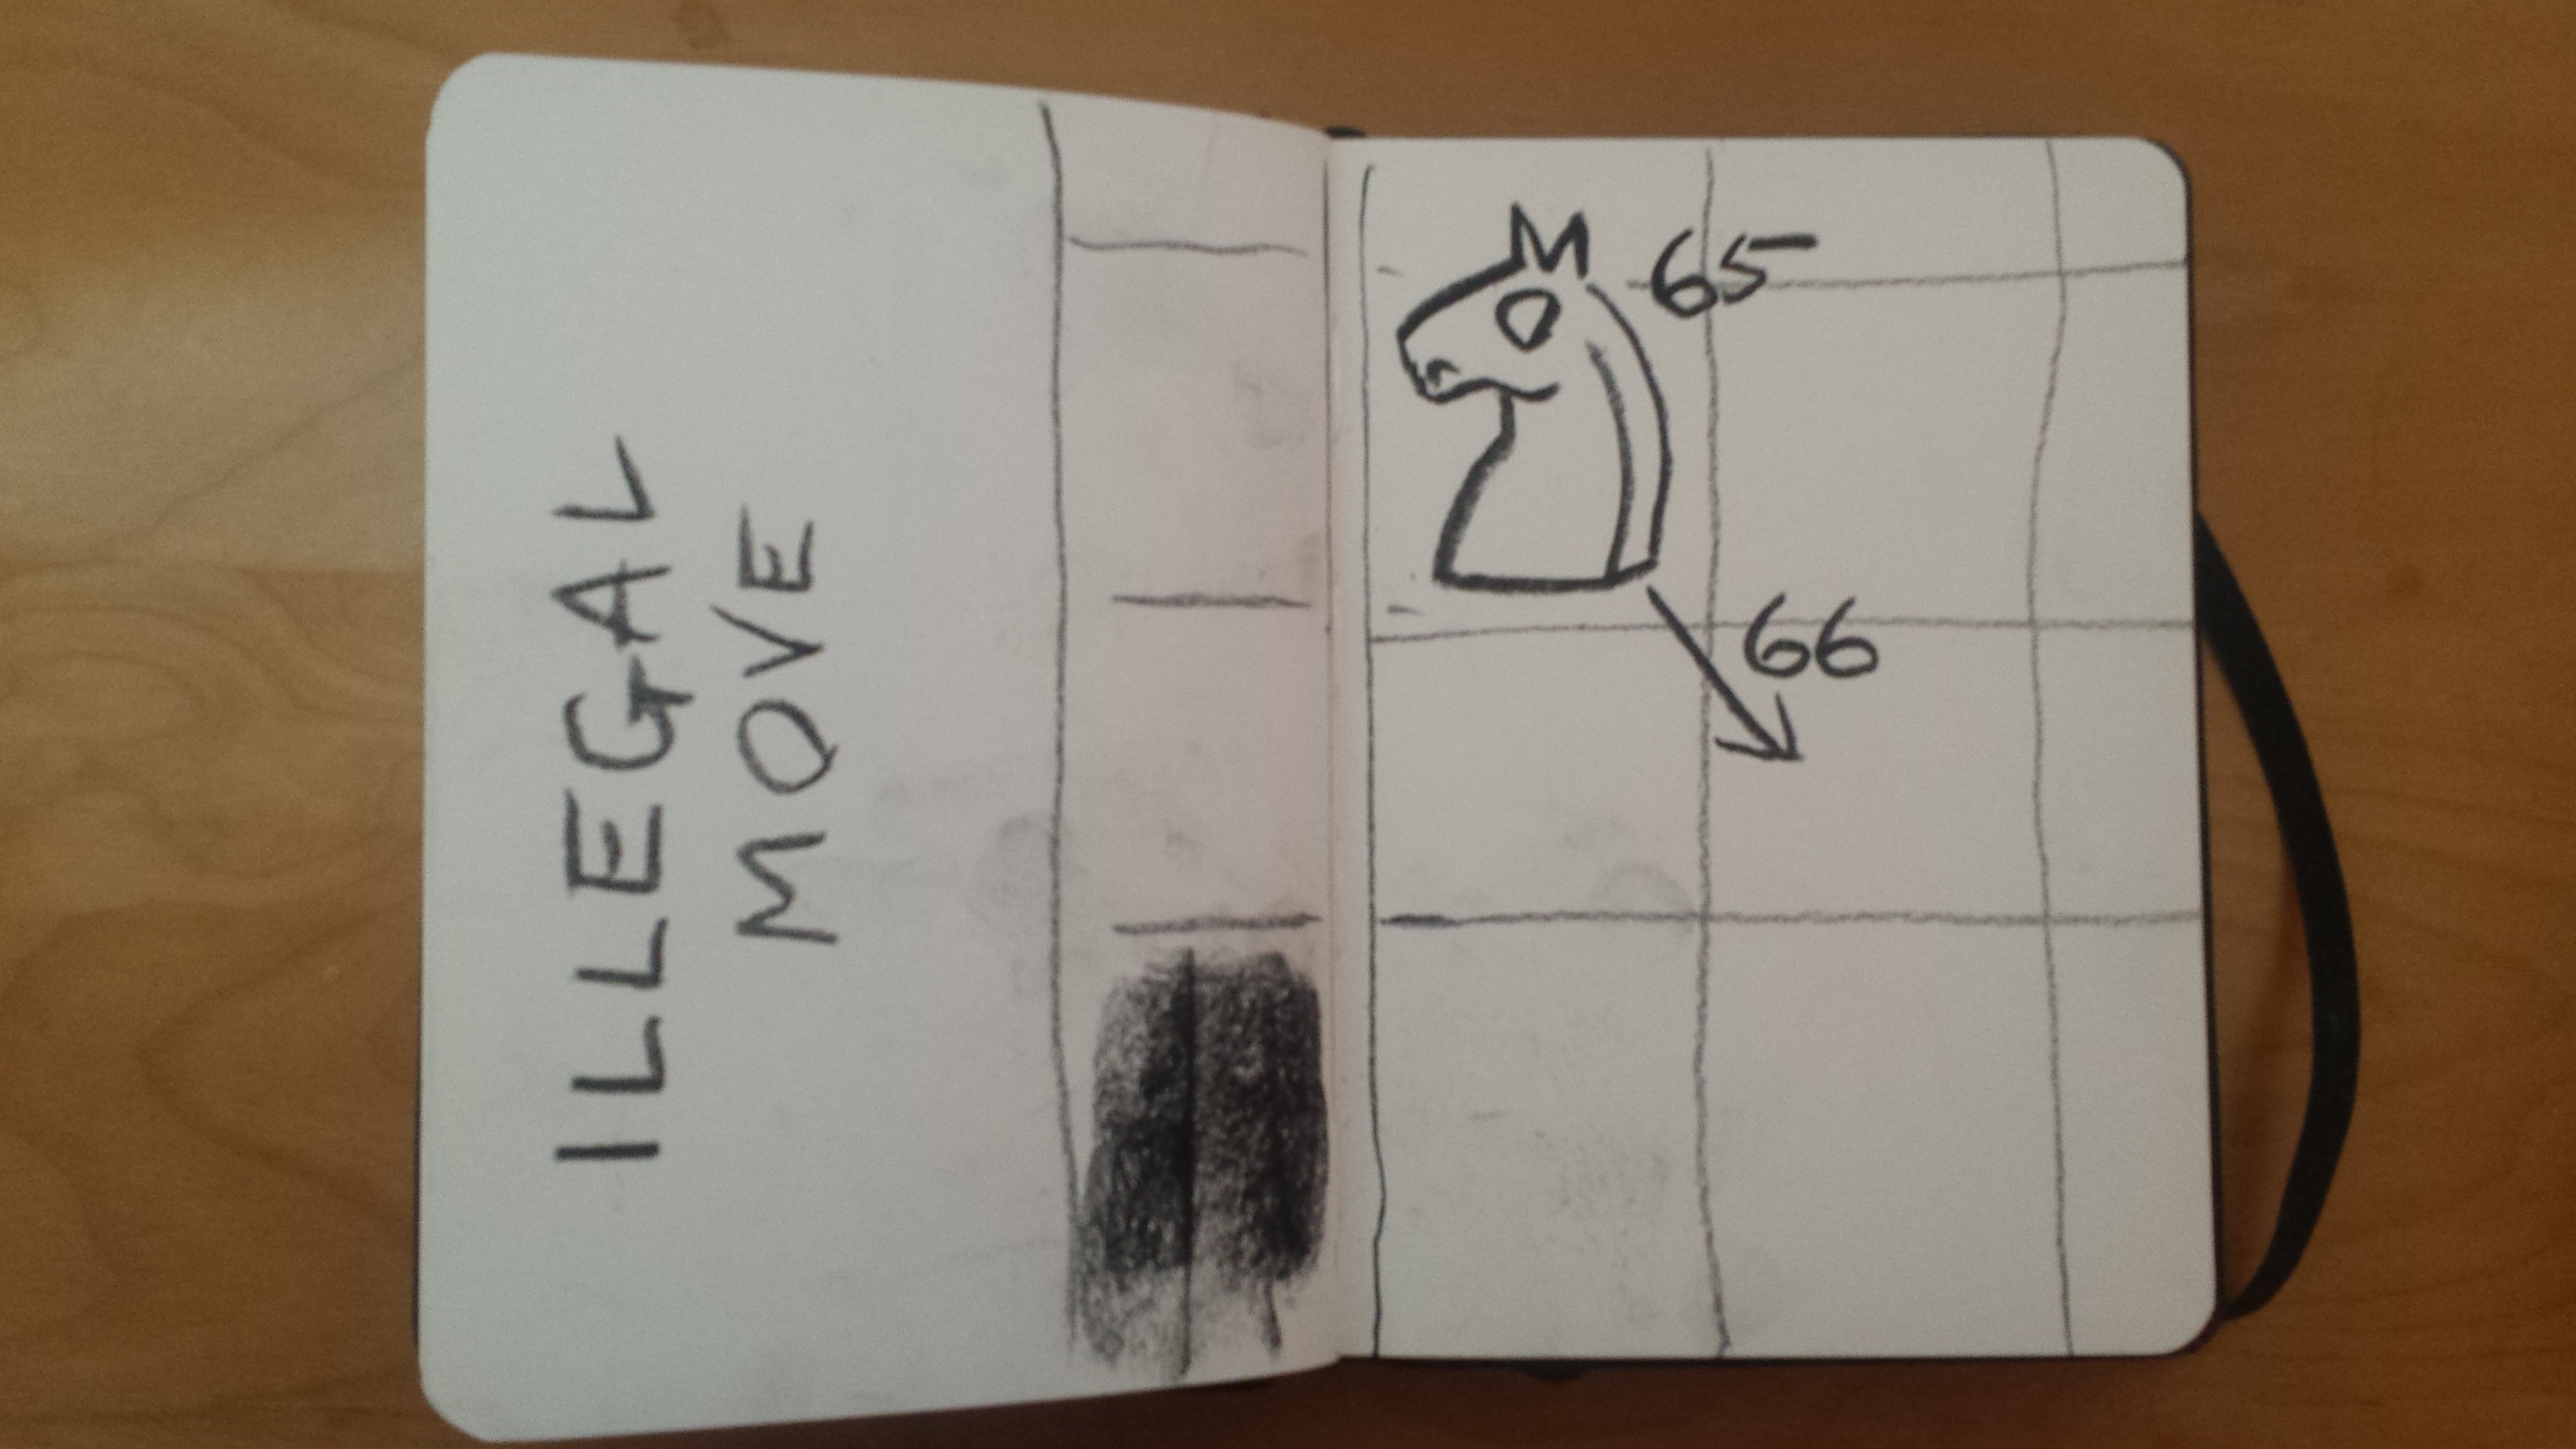 ILLEGAL
MOVE
65
66